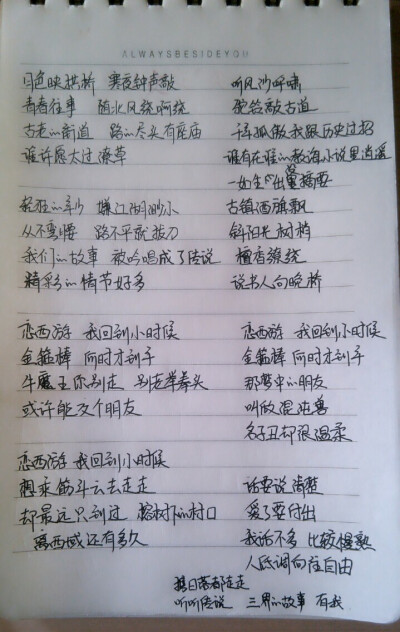 ALWAYSBESIDEYOU
月色映拱桥 寒夜钟声敲
青春往事 随北风绕啊绕
古老的街道 路的尽头有座庙
谁许愿太过潦草
轻狂的年少 嫌江湖渺小
从不弯腰 路不平就拔刀
我们的故事 被吟唱成了传说
精彩的情节好多
恋西游 我回到小时候
金箍棒 何时才到手
牛魔王你别走 别老举拳头
或许能交个朋友
恋西游 我回到小时候
想乘筋斗云去走走
却最远只到过 榕树下的村口
离西域还有多久
听风沙呼啸
驼铃敲古道
千年孤傲我跟历史过招
谁在谁的 小说里逍遥
一如生 出摘要
古镇酒旗飘
斜阳老树梢
檀香缭绕
说书人向晚桥
恋西游 我回到小时候
金箍棒 何时才到手
那梦中的朋友
叫做混沌兽
名字丑却很温柔
话要说清楚
爱了要付出
我话不多 比较慢熟
人低调向往自由
携日落都走走
听听传说 三界的故事 有我